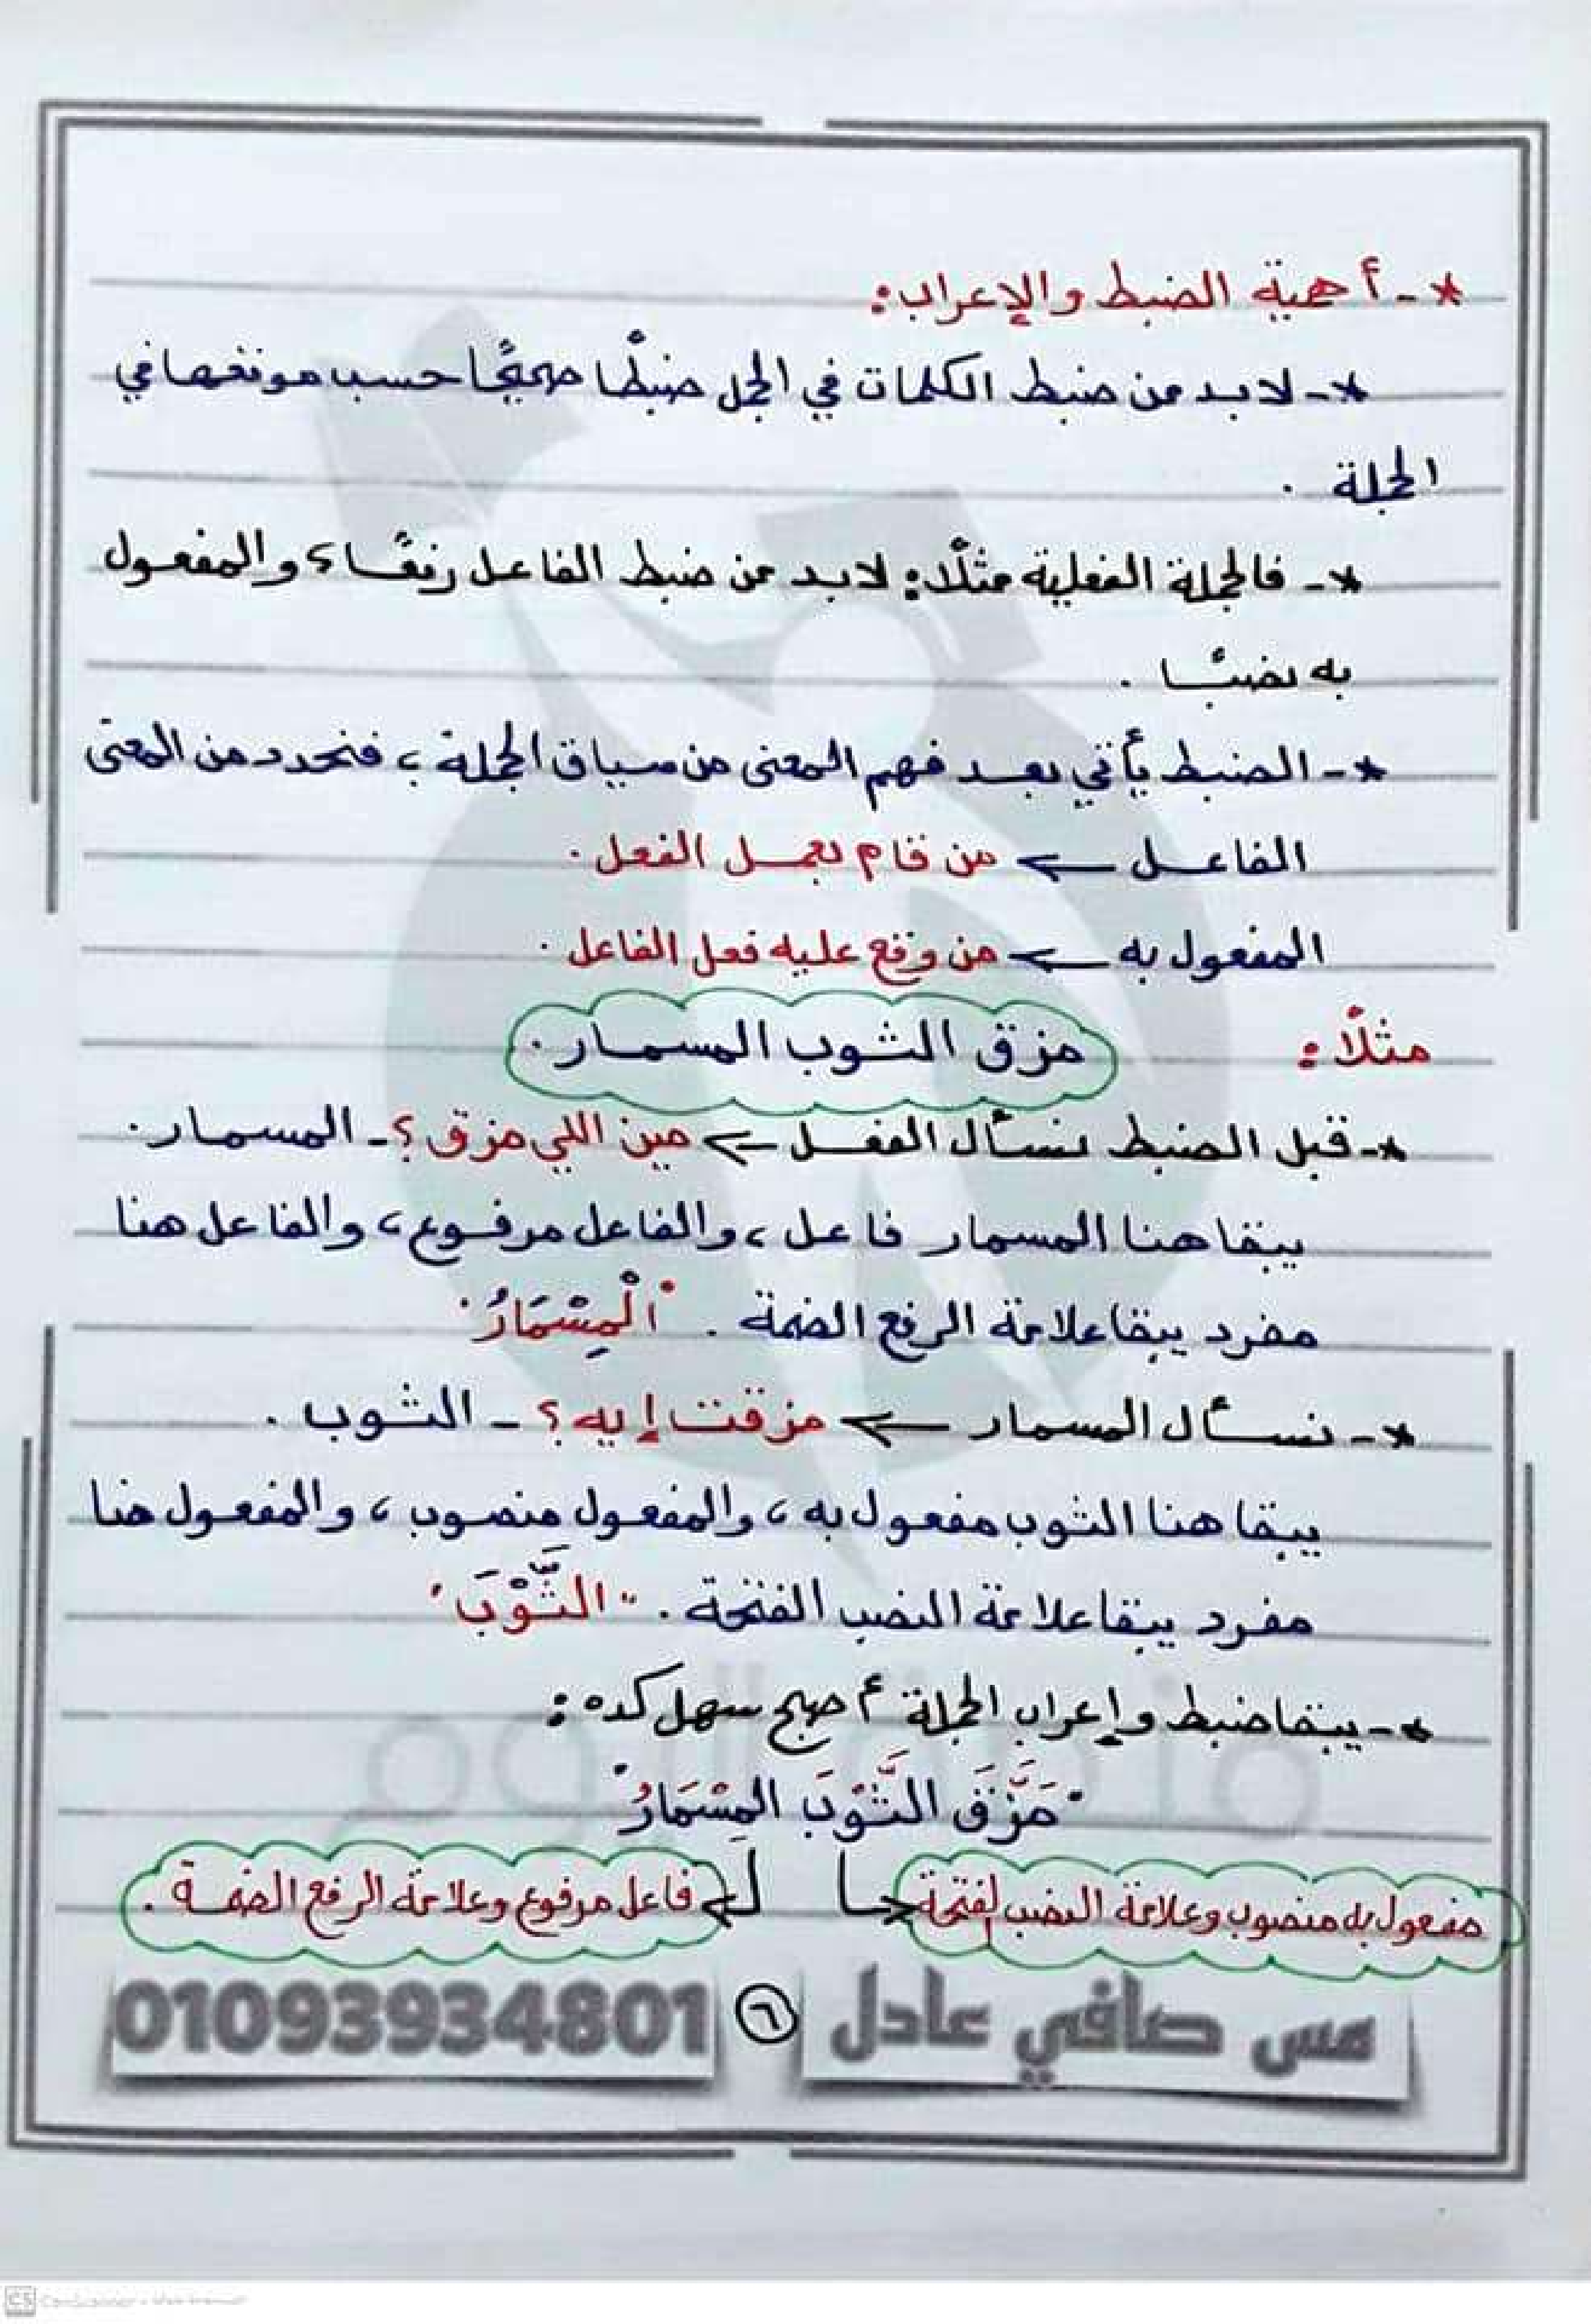 *- أهمية الضبط والإعراب:
*- لابد من ضبط الكلمات في الجمل ضبطًا صحيحًا حسب موقعها في
الجملة .
*- فالجملة الفعلية مثلًا: لابد من ضبط الفاعل رفعًا، والمفعول
به نصبًا .
*- الضبط يأتي بعد فهم المعنى من سياق الجملة، فنحدد من المعنى
الفاعل ← من قام بعمل الفعل .
المفعول به ← من وقع عليه فعل الفاعل .
مثلًا: مزق الثوب المسمار .
*- قبل الضبط نسأل الفعل ← مين اللي مزق؟ - المسمار .
يبقا هنا المسمار فاعل، والفاعل مرفوع، والفاعل هنا
مفرد يبقا علامة الرفع الضمة . "الْمِسْمَارُ"
*- نسأل المسمار ← مزقت إيه؟ - الثوب .
يبقا هنا الثوب مفعول به، والمفعول منصوب، والمفعول هنا
مفرد يبقا علامة النصب الفتحة . "الثَّوْبَ"
*- يبقا ضبط وإعراب الجملة أصبح سهل كده:
"مَزَّقَ الثَّوْبَ المِسْمَارُ"
مفعول به منصوب وعلامة النصب لفتحة فاعل مرفوع وعلامة الرفع الضمة .
مس صافي عادل ٦ 01093934801
CS CamScanner